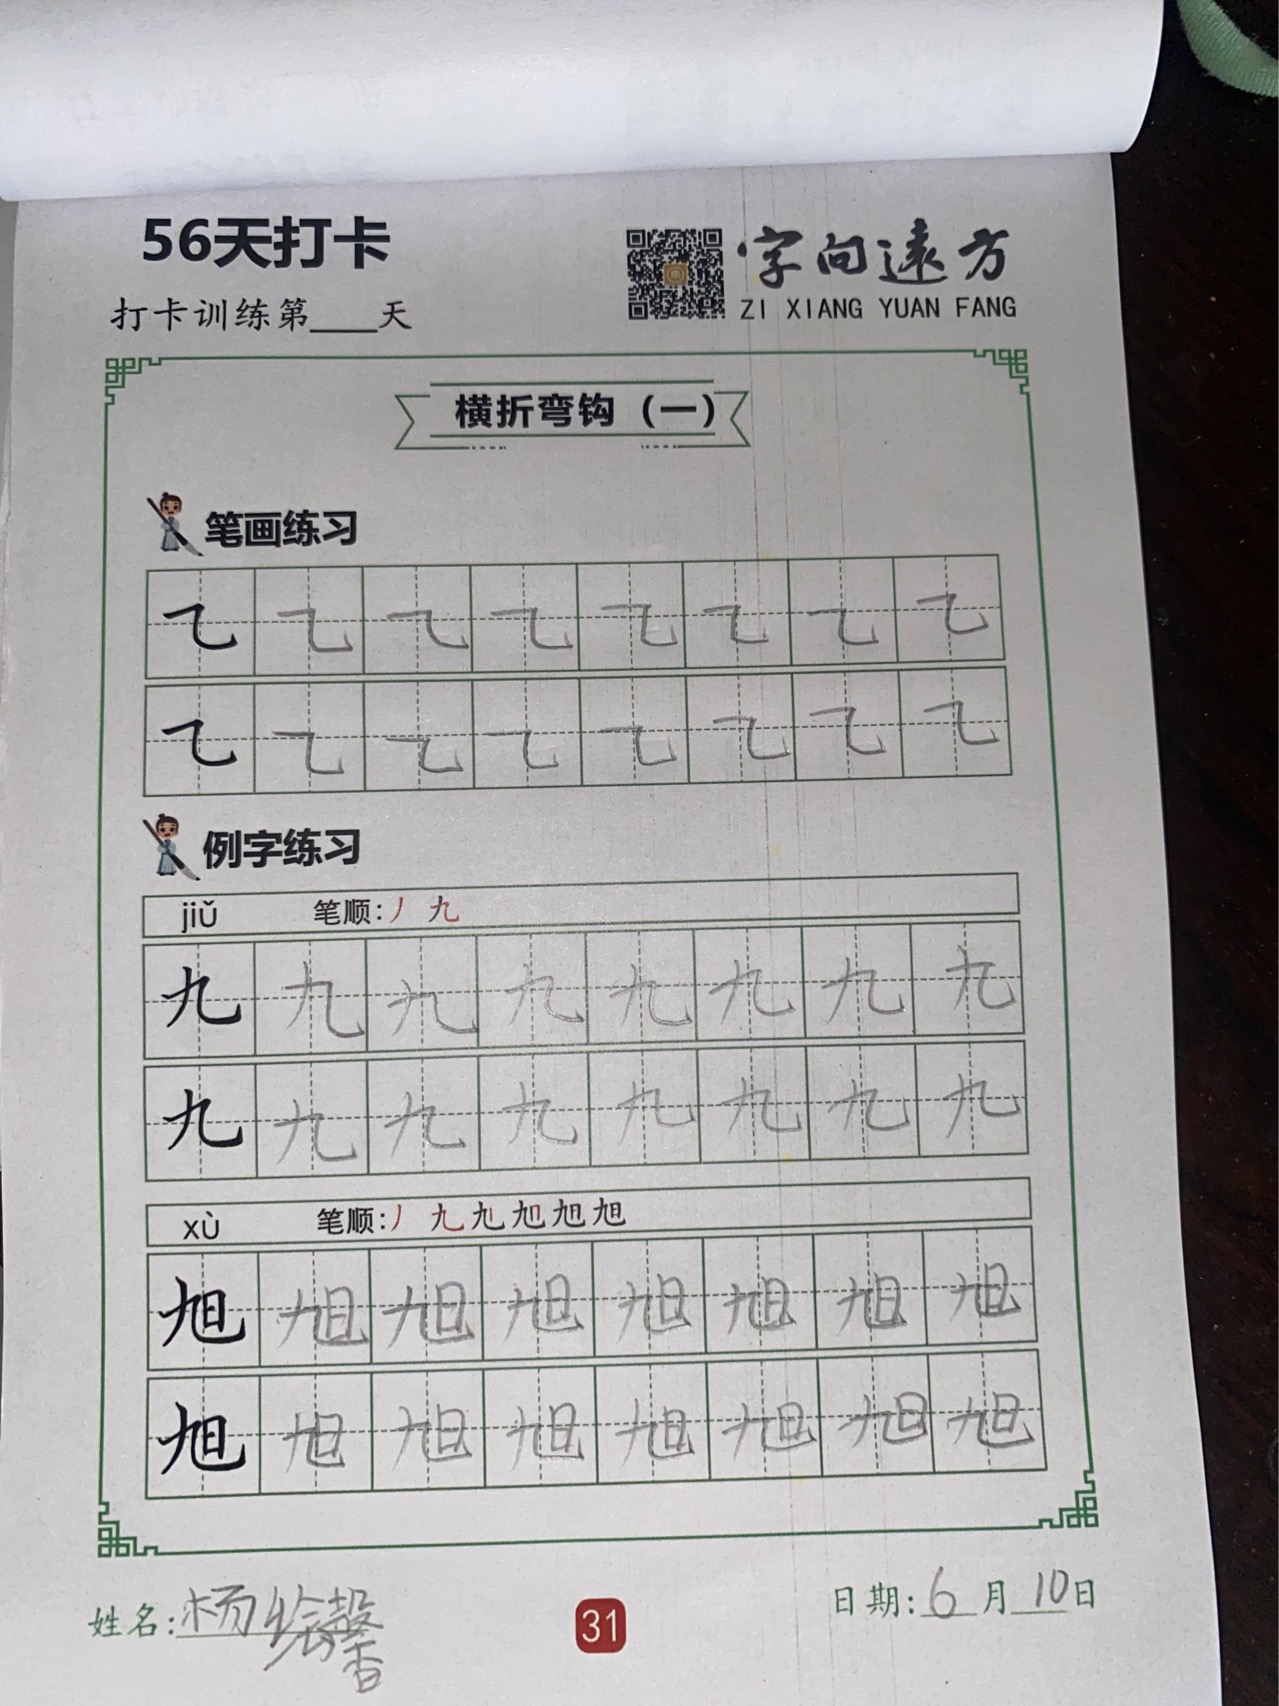 56天打卡
打卡训练第____天
字向遠方
ZI XIANG YUAN FANG
横折弯钩（一）
笔画练习
㇈ ㇈ ㇈ ㇈ ㇈ ㇈ ㇈ ㇈
㇈ ㇈ ㇈ ㇈ ㇈ ㇈ ㇈ ㇈
例字练习
jiǔ 笔顺:丿 九
九 九 九 九 九 九 九 九
九 九 九 九 九 九 九 九
xù 笔顺:丿 九 旭 旭 旭 旭
旭 旭 旭 旭 旭 旭 旭 旭
旭 旭 旭 旭 旭 旭 旭 旭
姓名:杨绘馨
31
日期:6月10日